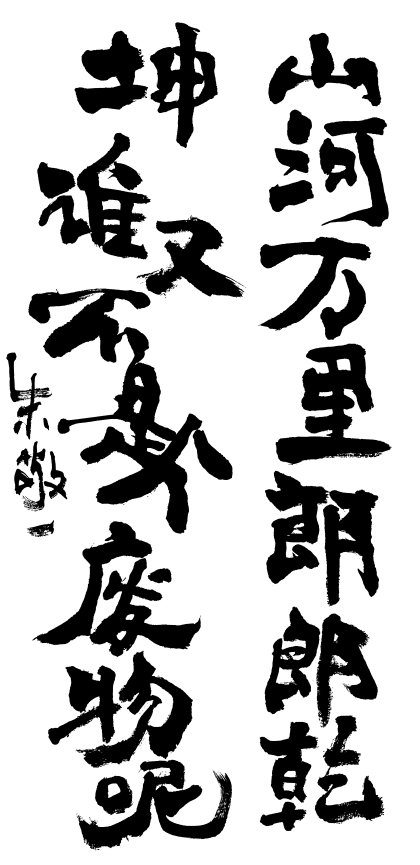 山河万里朗朗乾
坤谁又不是废物呢
朱敬一